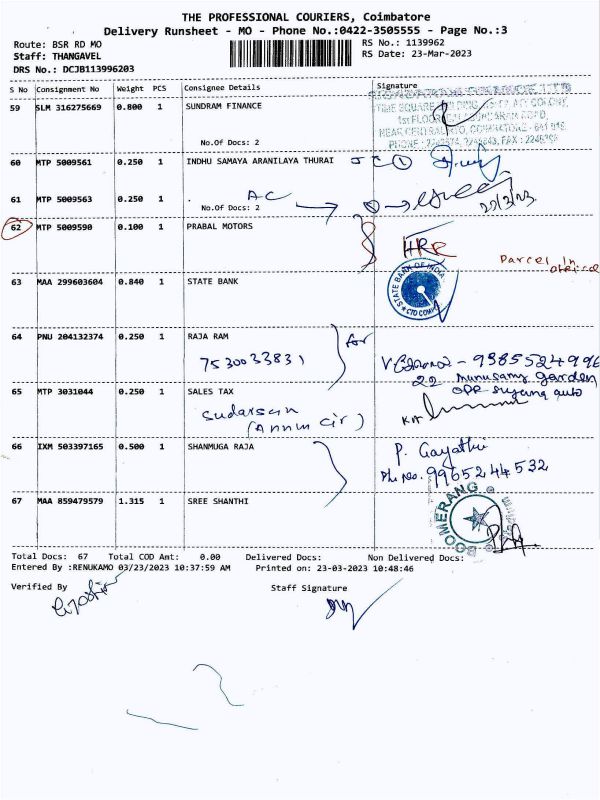 THE PROFESSIONAL COURIERS, Coimbatore
Delivery Runsheet - MO - Phone No.:0422-3505555 - Page No.:3
Route: BSR RD MO
RS No.: 1139962
Staff: THANGAVEL
RS Date: 23-Mar-2023
DRS No.: DCJB113996203
S No Consignment No Weight PCS Consignee Details Signature
59 SLM 316275669 0.800 1 SUNDRAM FINANCE
No.Of Docs: 2
60 MTP 5009561 0.250 1 INDHU SAMAYA ARANILAYA THURAI
61 MTP 5009563 0.250 1 . AC
No.Of Docs: 2
23/3/23
62 MTP 5009590 0.100 1 PRABAL MOTORS
Parcel In
63 MAA 299603604 0.840 1 STATE BANK
STATE BANK OF INDIA
64 PNU 204132374 0.250 1 RAJA RAM for
7530033831
22 Munusamy garden
65 MTP 3031044 0.250 1 SALES TAX
OPP suguna auto
Sudarsan
66 IXM 503397165 0.500 1 SHANMUGA RAJA
P. Gayathri
Ph No. 9965244532
67 MAA 859479579 1.315 1 SREE SHANTHI
BOOMERANG
Total Docs: 67 Total COD Amt: 0.00 Delivered Docs: Non Delivered Docs:
Entered By :RENUKAMO 03/23/2023 10:37:59 AM Printed on: 23-03-2023 10:48:46
Verified By Staff Signature